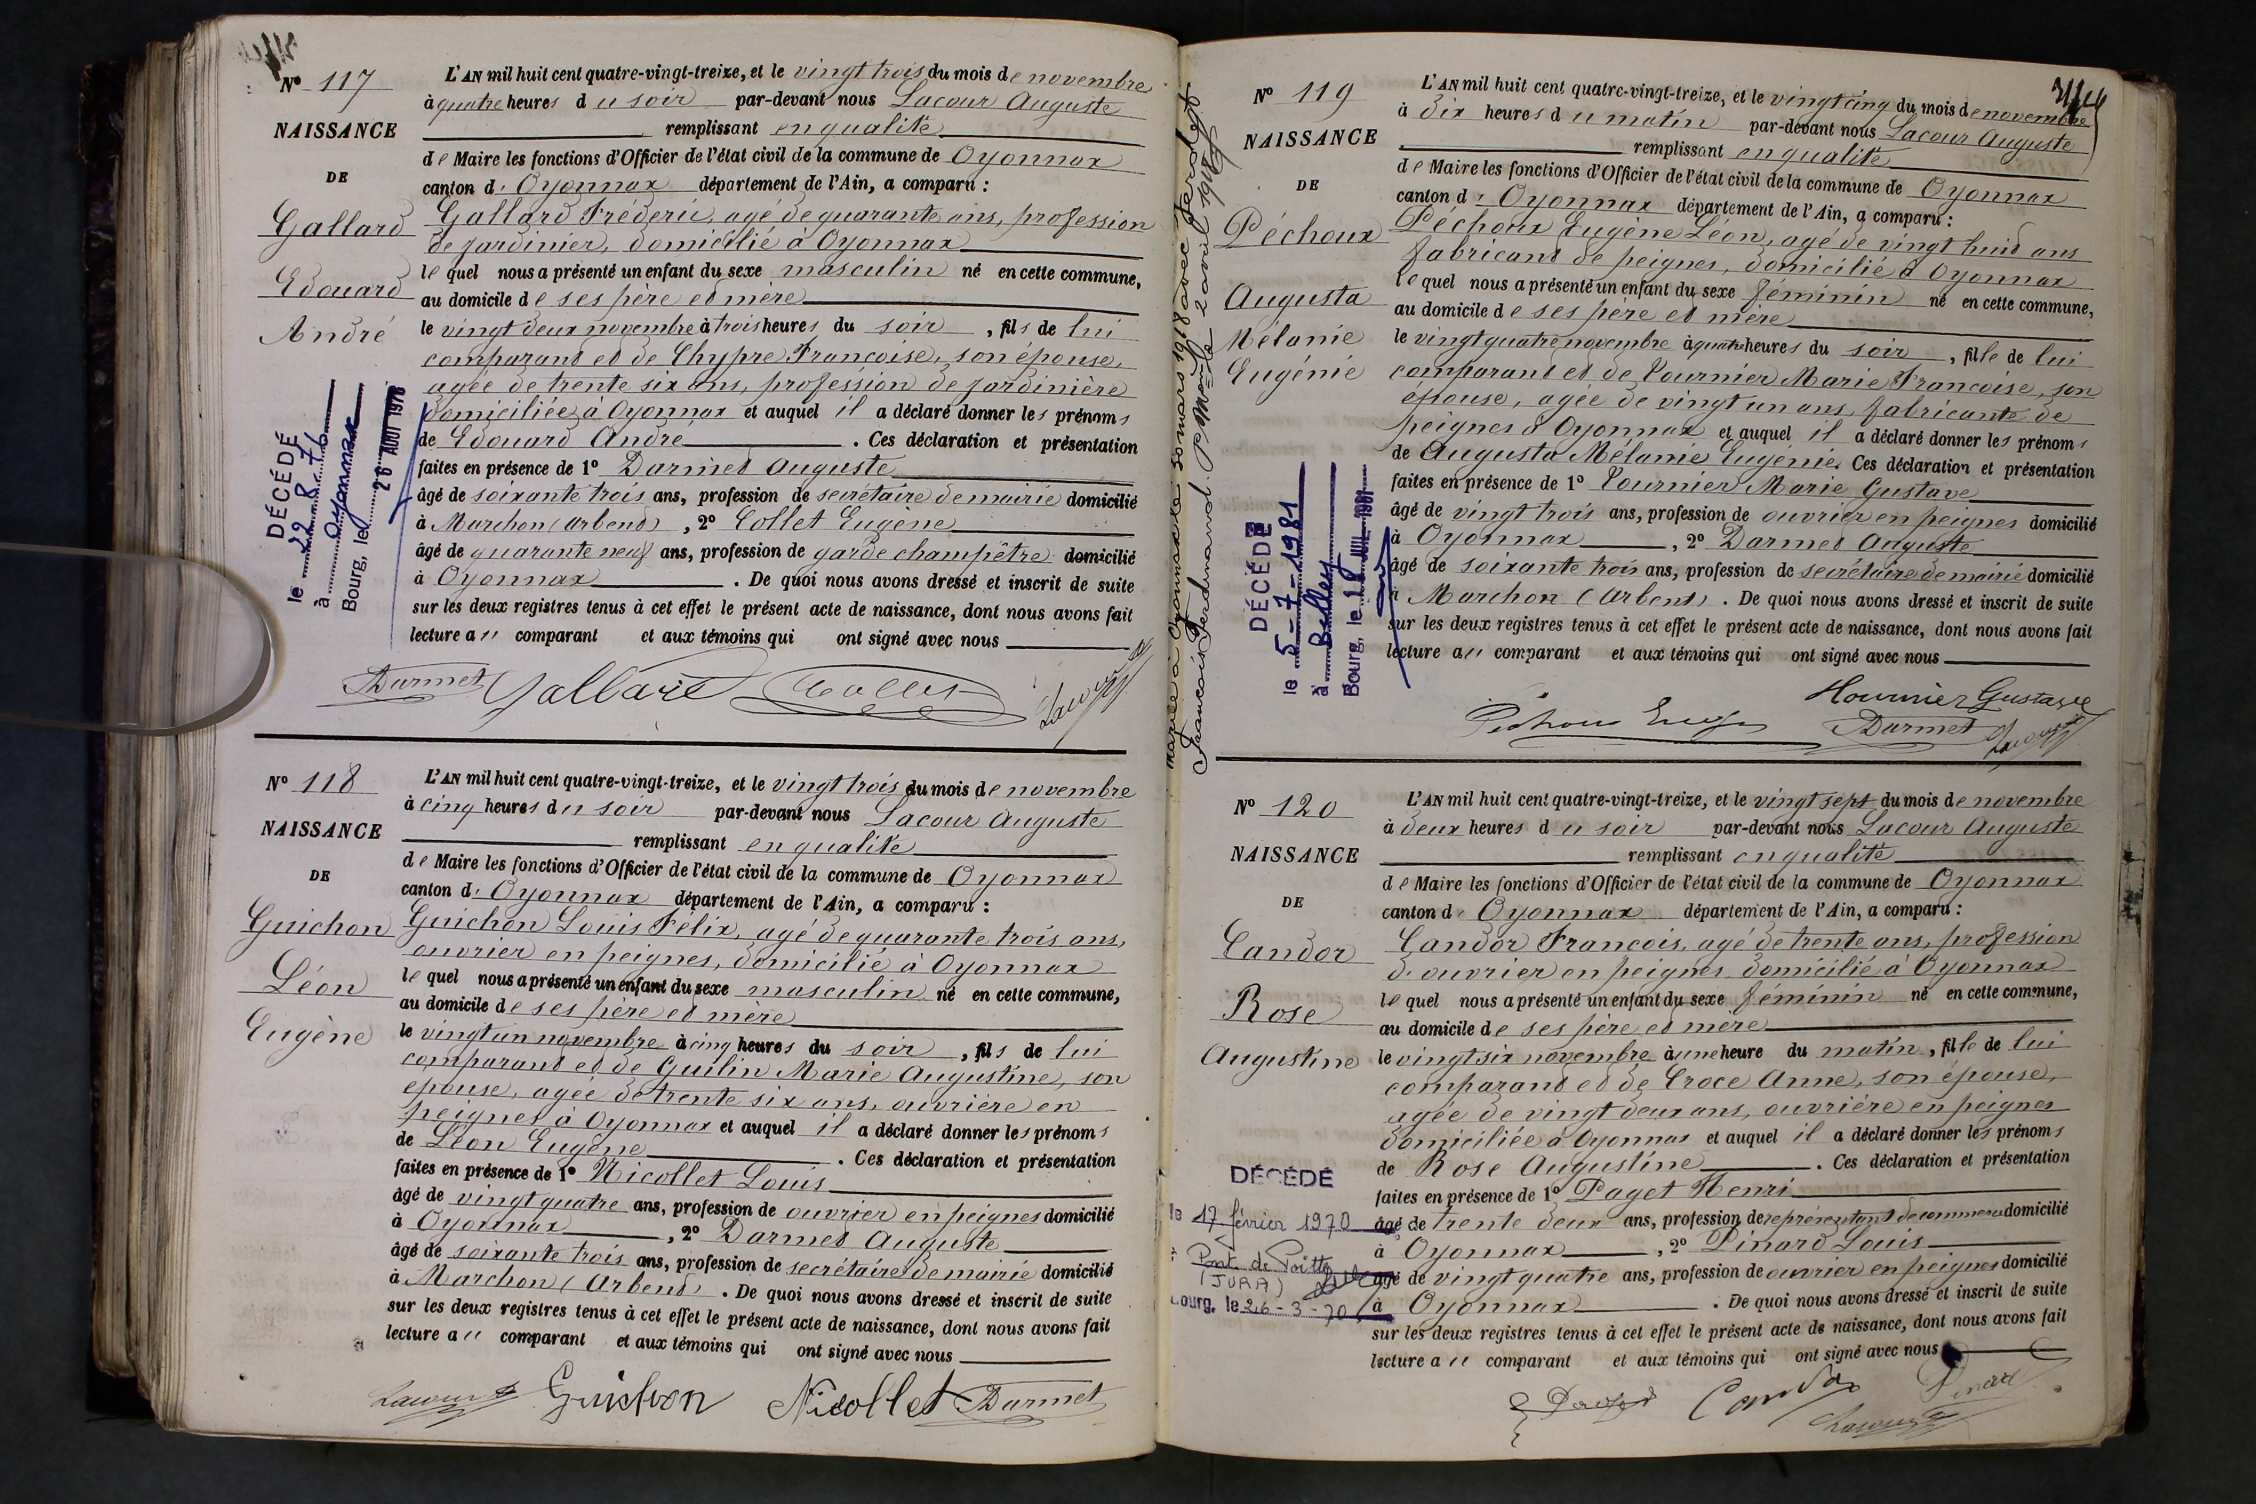 N° 117
NAISSANCE
DE
Gallard
Edouard
André
DÉCÉDÉ
le 22.8.76
à Oyonnax
Bourg, le 26 AOUT 1976
L'AN mil huit cent quatre-vingt-treize, et le vingt trois du mois de novembre
à quatre heures du soir par-devant nous Lacour Auguste
remplissant en qualité
de Maire les fonctions d'Officier de l'état civil de la commune de Oyonnax
canton d' Oyonnax département de l'Ain, a comparu :
Gallard Fréderic, agé de quarante ans, profession
de jardinier, domicilié à Oyonnax
le quel nous a présenté un enfant du sexe masculin né en cette commune,
au domicile de ses père et mère
le vingt deux novembre à trois heures du soir, fils de lui
comparant et de Chypre Françoise, son épouse,
agée de trente six ans, profession de jardinière
domiciliée à Oyonnax et auquel il a déclaré donner les prénoms
de Edouard André . Ces déclaration et présentation
faites en présence de 1° Darmet Auguste
âgé de soixante trois ans, profession de secrétaire de mairie domicilié
à Marchon (Arbent), 2° Collet Eugène
âgé de quarante neuf ans, profession de garde champêtre domicilié
à Oyonnax . De quoi nous avons dressé et inscrit de suite
sur les deux registres tenus à cet effet le présent acte de naissance, dont nous avons fait
lecture au comparant et aux témoins qui ont signé avec nous
Darmet Gallard Collet Lacour
N° 118
NAISSANCE
DE
Guichon
Léon
Eugène
L'AN mil huit cent quatre-vingt-treize, et le vingt trois du mois de novembre
à cinq heures du soir par-devant nous Lacour Auguste
remplissant en qualité
de Maire les fonctions d'Officier de l'état civil de la commune de Oyonnax
canton d' Oyonnax département de l'Ain, a comparu :
Guichon Louis Félix, agé de quarante trois ans,
ouvrier en peignes, domicilié à Oyonnax
le quel nous a présenté un enfant du sexe masculin né en cette commune,
au domicile de ses père et mère
le vingt un novembre à cinq heures du soir, fils de lui
comparant et de Guilin Marie Augustine, son
épouse, agée de trente six ans, ouvrière en
peignes à Oyonnax et auquel il a déclaré donner les prénoms
de Léon Eugène . Ces déclaration et présentation
faites en présence de 1° Nicollet Louis
âgé de vingt quatre ans, profession de ouvrier en peignes domicilié
à Oyonnax, 2° Darmet Auguste
âgé de soixante trois ans, profession de secrétaire de mairie domicilié
à Marchon (Arbent) . De quoi nous avons dressé et inscrit de suite
sur les deux registres tenus à cet effet le présent acte de naissance, dont nous avons fait
lecture au comparant et aux témoins qui ont signé avec nous
Lacour Guichon Nicollet Darmet
mariée à Oyonnax le 30 mars 1918 avec
François Ferdinand. le 2 avril 1918
N° 119
NAISSANCE
DE
Péchoux
Augusta
Mélanie
Eugénie
DÉCÉDÉ
le 5-7-1981
à Belley
Bourg, le 18 JUIL 1981
L'AN mil huit cent quatre-vingt-treize, et le vingt cinq du mois de novembre
à dix heures du matin par-devant nous Lacour Auguste
remplissant en qualité
de Maire les fonctions d'Officier de l'état civil de la commune de Oyonnax
canton d' Oyonnax département de l'Ain, a comparu :
Péchoux Eugène Léon, agé de vingt huit ans
fabricant de peignes, domicilié à Oyonnax
le quel nous a présenté un enfant du sexe féminin né en cette commune,
au domicile de ses père et mère
le vingt quatre novembre à quatre heures du soir, fille de lui
comparant et de Tournier Marie Françoise, son
épouse, agée de vingt un ans, fabricante de
peignes à Oyonnax et auquel il a déclaré donner les prénoms
de Augusta Mélanie Eugénie. Ces déclaration et présentation
faites en présence de 1° Tournier Marie Gustave
âgé de vingt trois ans, profession de ouvrier en peignes domicilié
à Oyonnax, 2° Darmet Auguste
âgé de soixante trois ans, profession de secrétaire de mairie domicilié
à Marchon (Arbent) . De quoi nous avons dressé et inscrit de suite
sur les deux registres tenus à cet effet le présent acte de naissance, dont nous avons fait
lecture au comparant et aux témoins qui ont signé avec nous
Tournier Gustave
Darmet Lacour
N° 120
NAISSANCE
DE
Candor
Rose
Augustine
DÉCÉDÉ
le 17 février 1970
Pont de Poitte
(JURA)
Bourg, le 26-3-70
L'AN mil huit cent quatre-vingt-treize, et le vingt sept du mois de novembre
à deux heures du soir par-devant nous Lacour Auguste
remplissant en qualité
de Maire les fonctions d'Officier de l'état civil de la commune de Oyonnax
canton d' Oyonnax département de l'Ain, a comparu :
Candor François, agé de trente ans, profession
d'ouvrier en peignes domicilié à Oyonnax
le quel nous a présenté un enfant du sexe féminin né en cette commune,
au domicile de ses père et mère
le vingt six novembre à une heure du matin, fille de lui
comparant et de Croce Anne, son épouse,
agée de vingt deux ans, ouvrière en peignes
domiciliée à Oyonnax et auquel il a déclaré donner les prénoms
de Rose Augustine . Ces déclaration et présentation
faites en présence de 1° Paget Henri
âgé de trente deux ans, profession de représentant de commerce domicilié
à Oyonnax, 2° Pinard Louis
âgé de vingt quatre ans, profession de ouvrier en peignes domicilié
à Oyonnax . De quoi nous avons dressé et inscrit de suite
sur les deux registres tenus à cet effet le présent acte de naissance, dont nous avons fait
lecture au comparant et aux témoins qui ont signé avec nous
Candor Pinard
Lacour